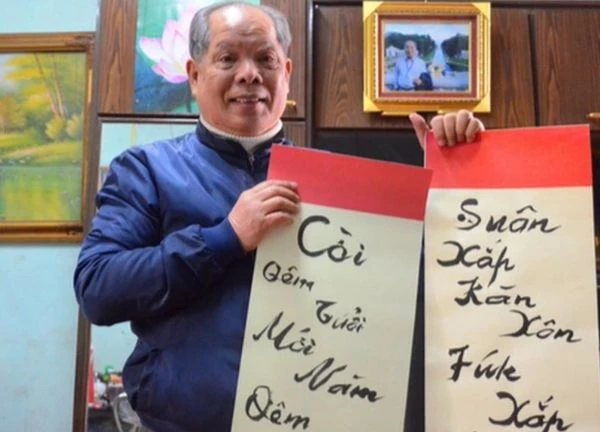 Cồi
Qêm
Tuổi
Mới
Năm
Qêm
Suân
Xắp
Kăn
Xôn
Fúk
Xắp